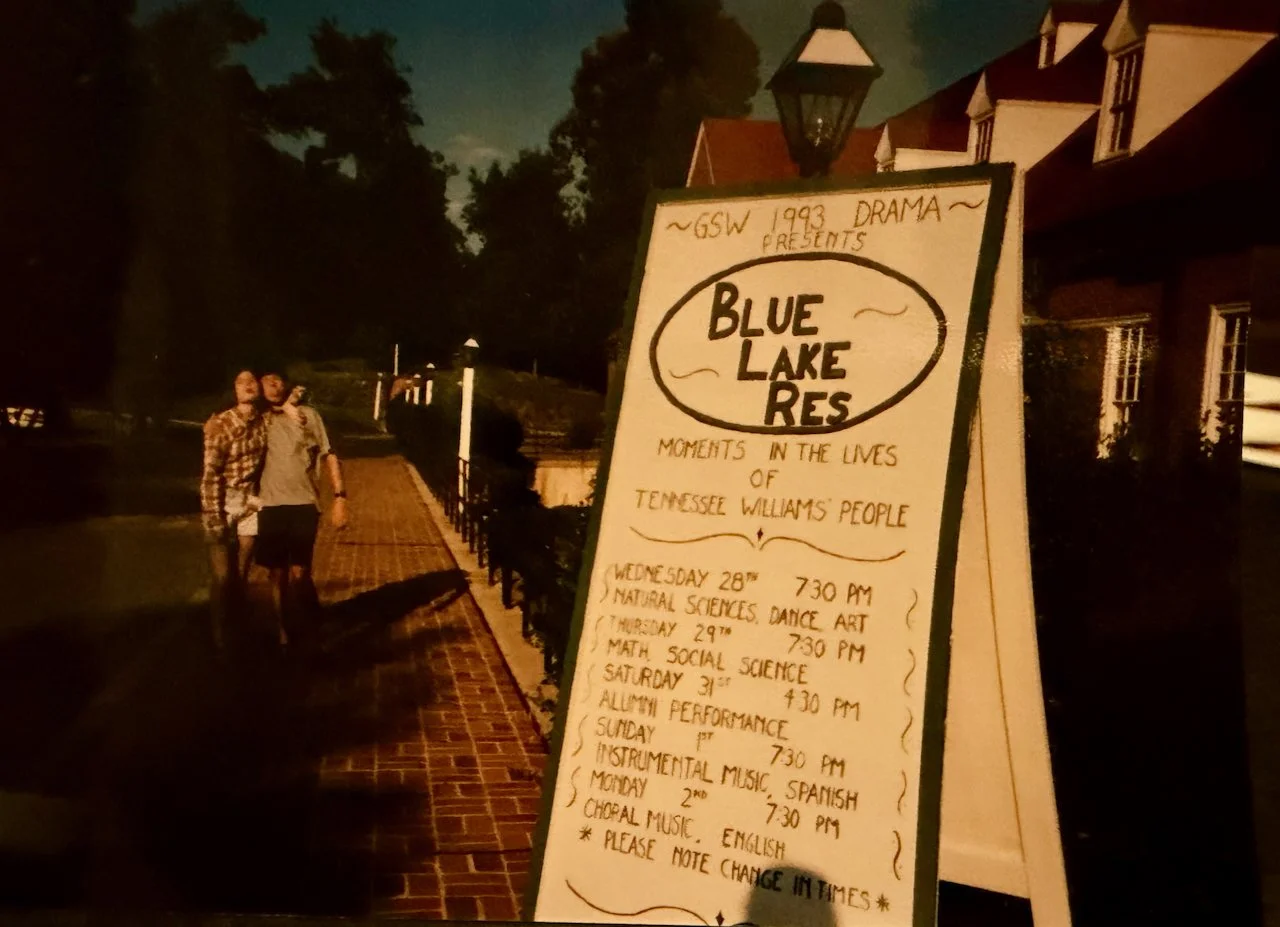 ~GSW 1993 DRAMA~
PRESENTS
BLUE
LAKE
RES
MOMENTS IN THE LIVES
OF
TENNESSEE WILLIAMS' PEOPLE
WEDNESDAY 28TH 7:30 PM
NATURAL SCIENCES, DANCE, ART
THURSDAY 29TH 7:30 PM
MATH, SOCIAL SCIENCE
SATURDAY 31ST 4:30 PM
ALUMNI PERFORMANCE
SUNDAY 1ST 7:30 PM
INSTRUMENTAL MUSIC, SPANISH
MONDAY 2ND 7:30 PM
CHORAL MUSIC, ENGLISH
* PLEASE NOTE CHANGE IN TIMES *